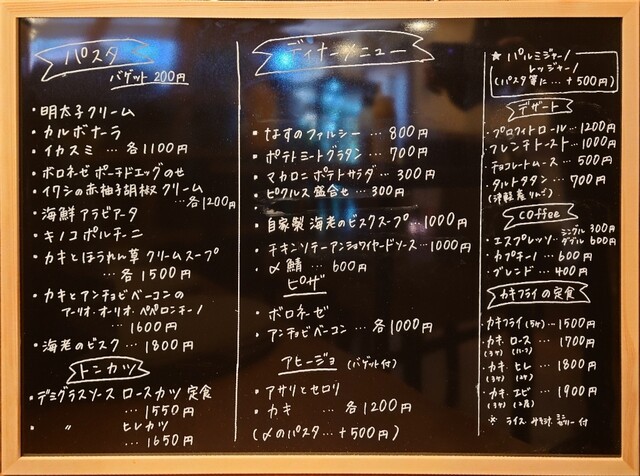 パスタ
バゲット 200円
・明太子クリーム
・カルボナーラ
・イカスミ … 各1100円
・ボロネーゼ ポーチドエッグのせ
・イワシの赤柚子胡椒クリーム
… 各1200円
・海鮮アラビアータ
・キノコポルチーニ
・カキとほうれん草クリームスープ
… 各1500円
・カキとアンチョビベーコンの
アーリオ・オーリオ・ペペロンチーノ
… 1600円
・海老のビスク … 1800円
トンカツ
・デミグラスソース ロースカツ 定食
… 1550円
・ 〃 ヒレカツ
… 1650円
ディナーメニュー
・なすのファルシー … 800円
・ポテトミートグラタン … 700円
・マカロニポテトサラダ … 300円
・ピクルス盛合せ … 300円
・自家製 海老のビスクスープ … 1000円
・チキンソテーアンショワイヤードソース … 1000円
・〆鯖 … 600円
ピザ
・ボロネーゼ
・アンチョビベーコン … 各1000円
アヒージョ (バゲット付)
・アサリとセロリ
・カキ … 各1200円
(〆のパスタ … +500円)
★ パルミジャーノ
レッジャーノ
(パスタ等に … +500円)
デザート
・プロフィトロール … 1200円
・フレンチトースト … 1000円
・チョコレートムース … 500円
・タルトタタン … 700円
(津軽産りんご)
coffee
・エスプレッソ … シングル 300円
ダブル 600円
・カプチーノ … 600円
・ブレンド … 400円
カキフライの定食
・カキフライ(5ケ) … 1500円
・カキ・ロース … 1700円
(3ケ)
・カキ・ヒレ … 1800円
(3ケ) (2ケ)
・カキ・エビ … 1900円
(3ケ) (2尾)
※ ライス みそ汁 ミニゼリー付